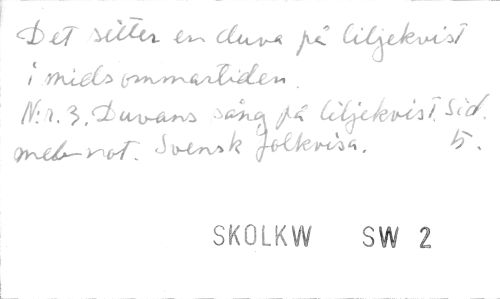 Det sitter en duva på liljekvist
i midsommartiden.
N:r. 3. Duvans sång på liljekvist. Sid.
med not. Svensk folkvisa. 5.
SKOLKW SW 2